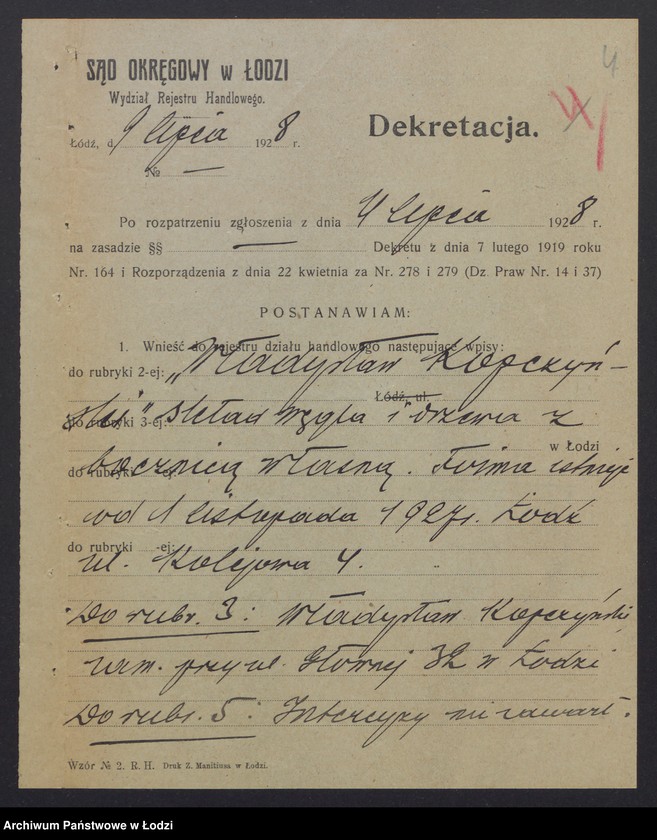 4
SĄD OKRĘGOWY w ŁODZI
Wydział Rejestru Handlowego.
Łódź, d. 9 lipca 1928 r.
№ —
Dekretacja.
Po rozpatrzeniu zgłoszenia z dnia 4 lipca 1928 r.
na zasadzie §§ — Dekretu z dnia 7 lutego 1919 roku
Nr. 164 i Rozporządzenia z dnia 22 kwietnia za Nr. 278 i 279 (Dz. Praw Nr. 14 i 37)
POSTANAWIAM:
1. Wnieść do rejestru działu handlowego następujące wpisy:
do rubryki 2-ej: „Władysław Kopczyń-
Łódź, ul.
do rubryki 3-ej:
ski" skład węgla i drzewa z
w Łodzi
do rubryki -ej:
bocznicą własną. Firma istnieje
od 1 listopada 1927 r. Łódź
do rubryki -ej:
ul. Kolejowa 4.
Do rubr. 3: Władysław Kopczyński,
zam. przy ul. Głównej 32 w Łodzi
Do rubr. 5: Intercyzy nie zawarł.
Wzór № 2. R. H. Druk Z. Manitiusa w Łodzi.
Archiwum Państwowe w Łodzi